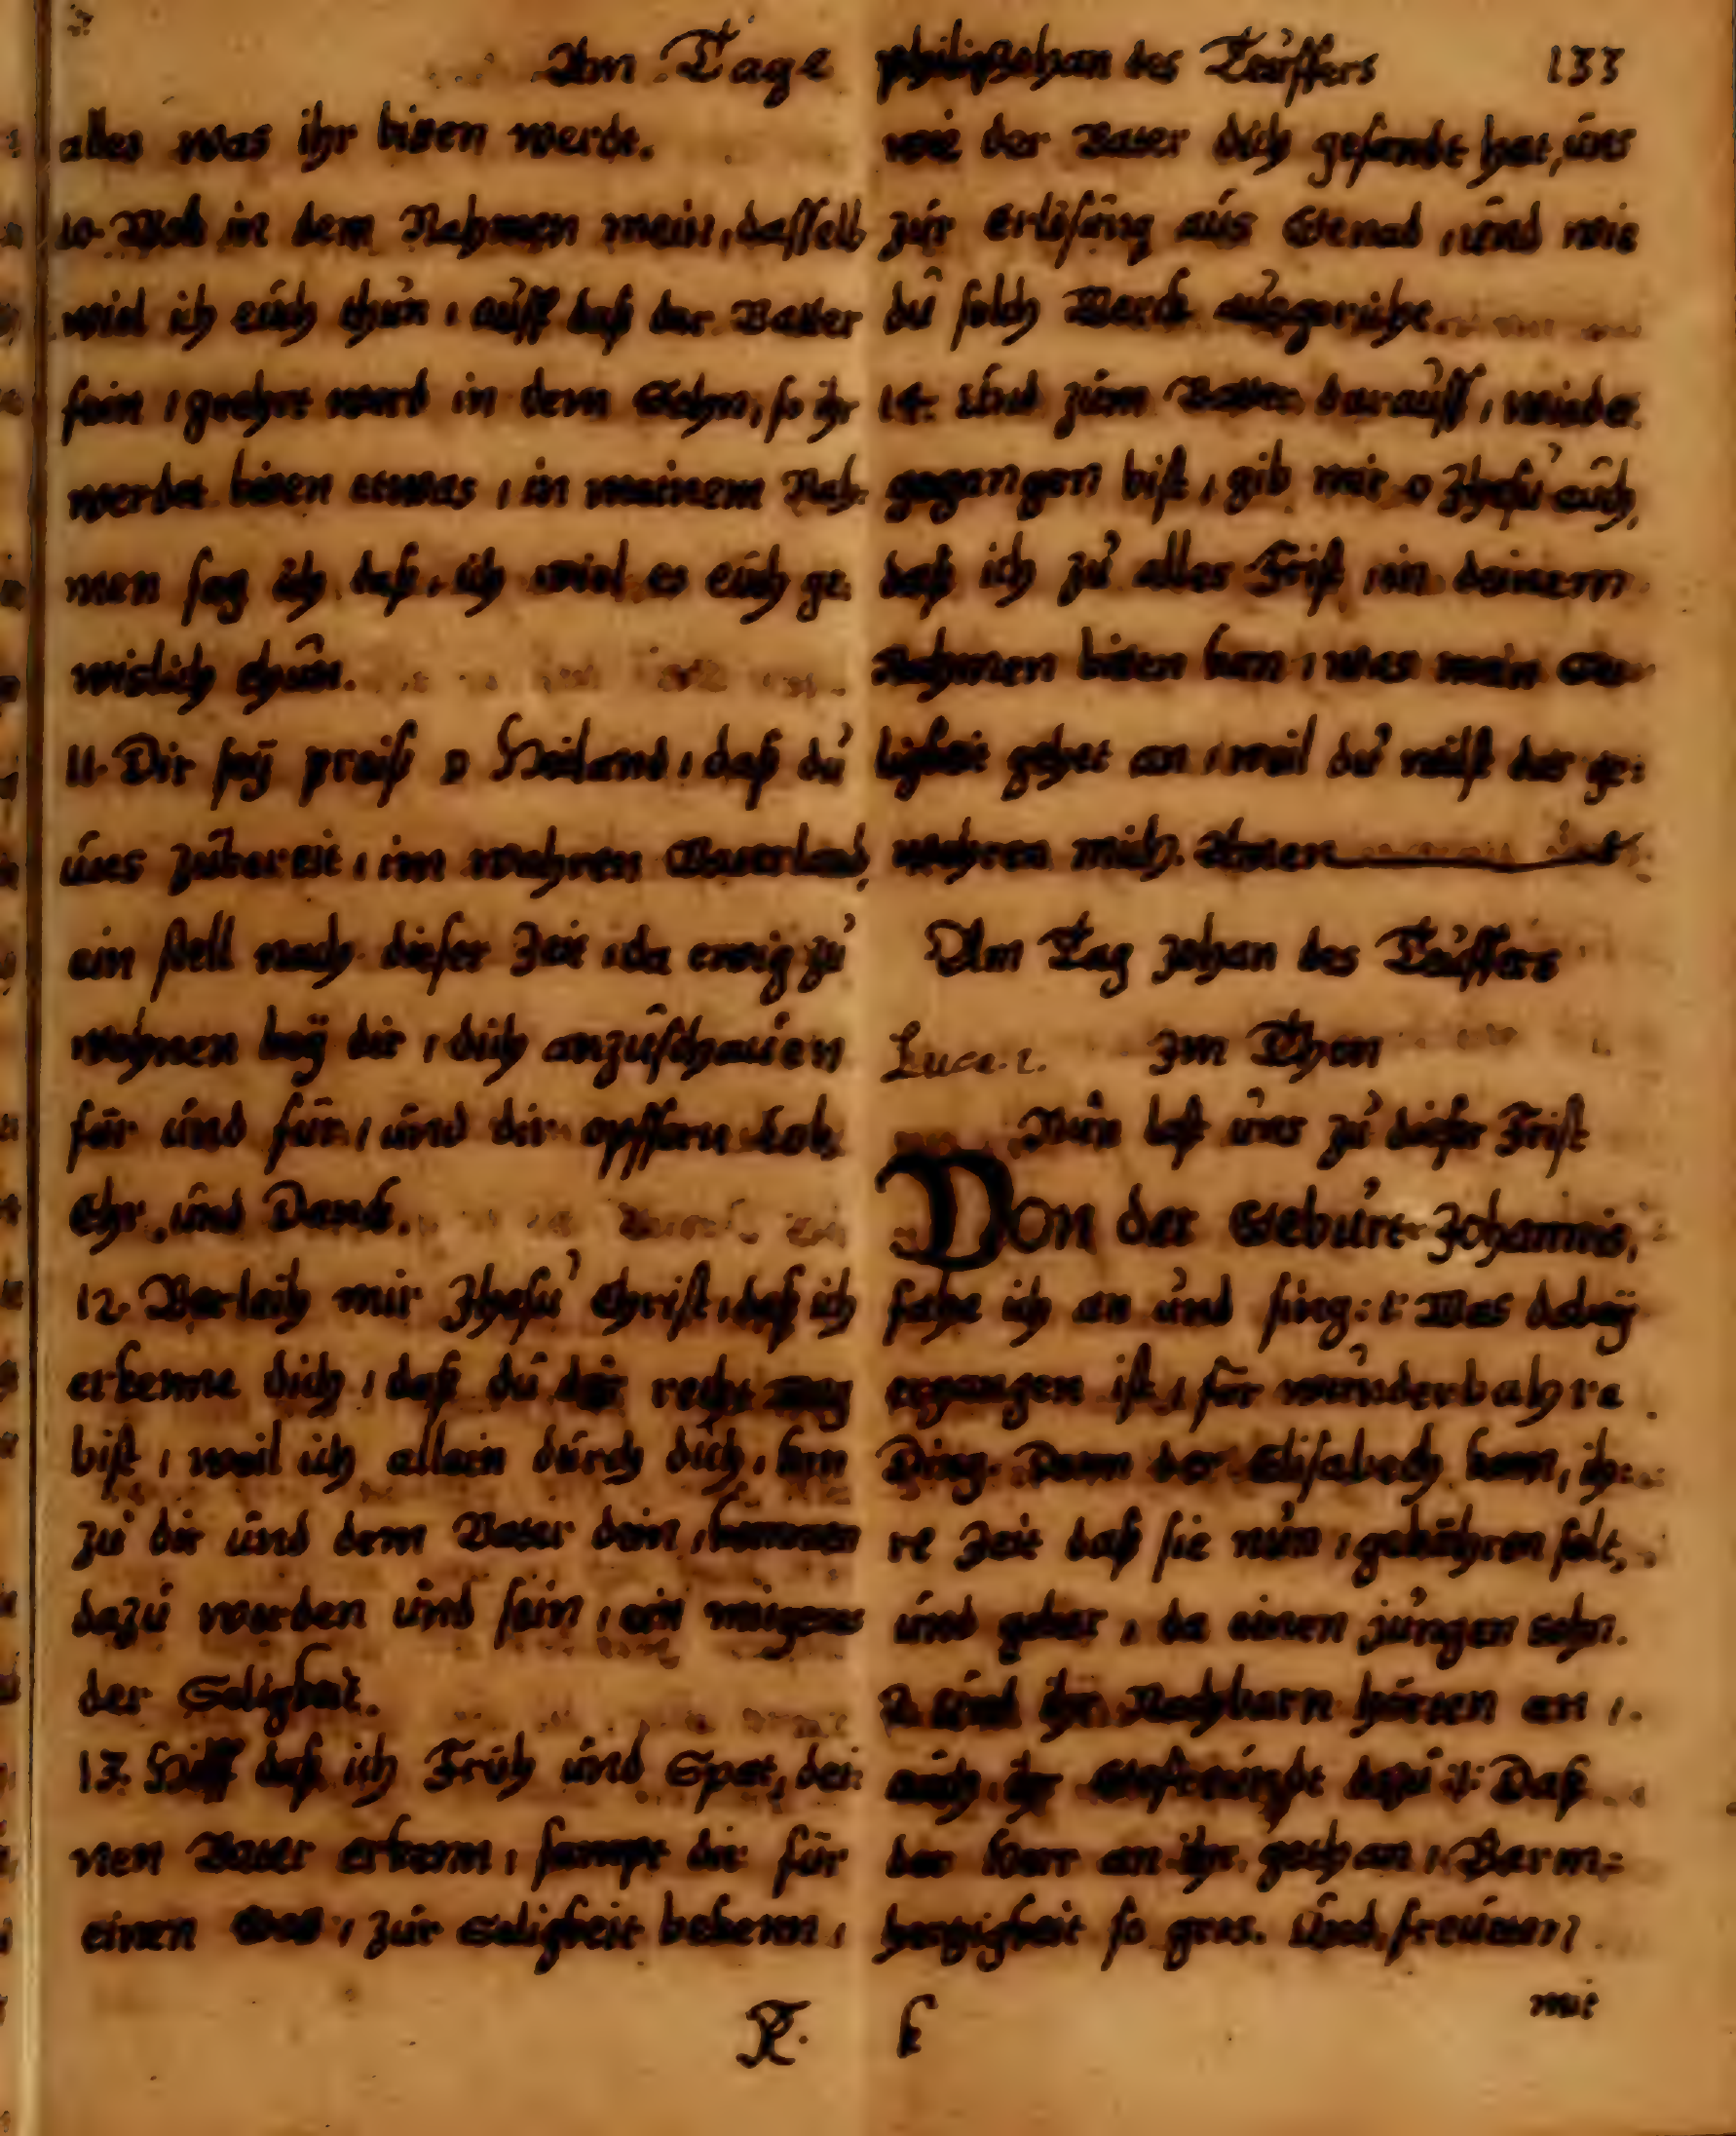 Am Tage Johan des Täuffers 133
alles was ihr bitten werdt.
10. Woh in dem Nahmen mein, dasselb
wiel ich eúch thún, aúff daß der Vatter
sein, geehrt werd in dem Sohn, so ihr
werdet bitten etwas, in meinem Nah-
men sag ich daß, ich wiel es eúch ge-
wislich thún.
11. Dir seÿ preiß o Heiland, daß dú
úns zúbereit, im wahren Vaterland,
ein stell nach dieser Zeit, da ewig zú
wohnen beÿ dir, dich anzúschaúen
für únd für, únd dir opffern Lob,
Ehr, únd Danck.
12. Verleih mir Jhesú Christ, daß ich
erkenne dich, daß dú der recht weg
bist, weil ich allein dúrch dich, kan
zú dir únd dem Vater dein, kommen
dazú werden únd sein, ein
der Seligkeit.
13. Hilff daß ich Früh únd Spat, dei-
nen Vater erkenn, sampt dir für
einen Gott, zúr Seligkeit bekenn,
wie der Vater dich gesandt hat, úns
zúr Erlösúng aús Genad, únd wie
dú solch Werck aúsgericht
14. Únd zúm Vatter daraúff, wieder
gegangen bist, gib mir o Jhesú aúch,
daß ich zú aller Frist, in deinem
Nahmen bitten kan, was mein See-
ligkeit gehet an, weil dú wilst der ge-
wehren mich. Amen
Am Tag Johan des Täúffers
Luce. 1. Im Thon
Nún last úns zú dieser Frist
Von der Gebúrt Johannis,
fahe ich an únd sing: Was dabeÿ
ergangen ist, für wúnderbahre
Ding. Dann der Elisabeth kam, ih-
re Zeit daß sie nún, gebähren solt,
únd gebar, da einen júngen Sohn.
2. Únd ihr Nachbarn hörten an,
aúch ihr Gefreúndt dazú: Daß
der Herr an ihr gethan, Barm-
hertzigkeit so gros. Únd freúten
mit